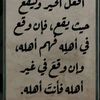 افعل الخير وليقع
حيث يقع، فإن وقع
في أهله فهم أهله،
وإن وقع في غير
أهله فأنت أهله.